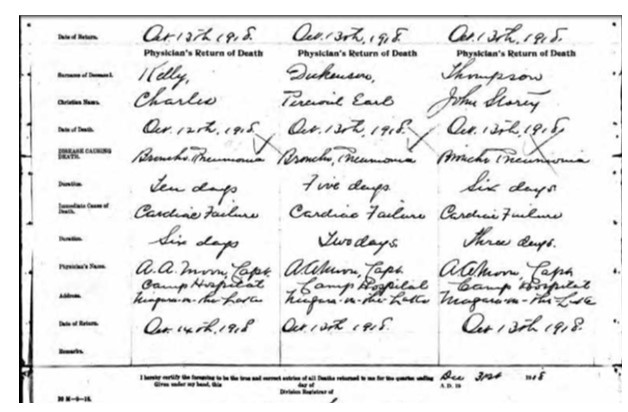 Date of Return. Oct. 13th, 1918. Oct. 13th, 1918. Oct. 13th, 1918.
Physician's Return of Death Physician's Return of Death Physician's Return of Death
Surname of Deceased. Kelly, Dickenson, Thompson
Christian Name. Charles Percival Earl John Storey
Date of Death. Oct. 12th, 1918 Oct. 13th, 1918 Oct. 13th, 1918,
DISEASE CAUSING DEATH. Broncho Pneumonia Broncho, Pneumonia Broncho Pneumonia
Duration. Ten days Five days Six days
Immediate Cause of Death. Cardiac Failure Cardiac Failure Cardiac Failure
Duration. Six days Two days Three days.
Physician's Name. A.A. Moon, Capt. Moon, Capt. Moon, Capt.
Camp Hospital Camp Hospital Camp Hospital
Address. Niagara-on-the-Lake Niagara-on-the-Lake Niagara-on-the-Lake
Date of Return. Oct. 14th, 1918 Oct. 13th, 1918. Oct 13th 1918.
Remarks.
I hereby certify the foregoing to be the true and correct entries of all Deaths returned to me for the quarter ending Dec 31st 1918
Given under my hand, this day of A.D. 19
Division Registrar of